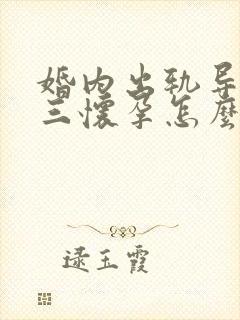 婚内出轨导
三懷孕怎麼
逯玉霞